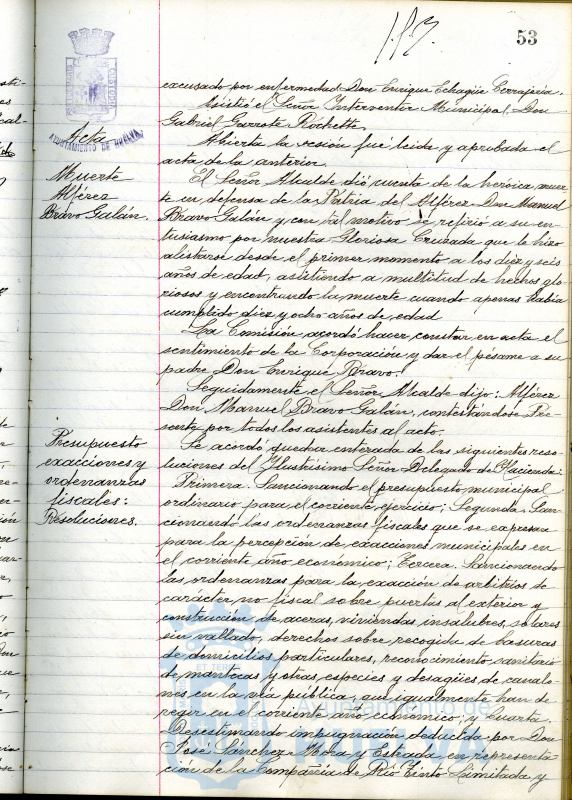 53
excusado por enfermedad Don Enrique Echagüe Cerrajería.
Asistió el Señor Interventor Municipal, Don
Gabriel Garrote Rochette.
Acta
AYUNTAMIENTO DE HUELVA
Abierta la sesión fué leida y aprobada el
acta de la anterior.
Muerte
Alférez
Bravo Galán.
El Señor Alcalde dió cuenta de la heróica muer-
te en defensa de la Patria del Alférez Don Manuel
Bravo Galán y con tal motivo se refirió a su en-
tusiasmo por nuestra Gloriosa Cruzada que le hizo
alistarse desde el primer momento a los diez y seis
años de edad, asistiendo a multitud de hechos glo-
riosos y encontrando la muerte cuando apenas había
cumplido diez y ocho años de edad
La Comisión acordó hacer constar en acta el
sentimiento de la Corporación y dar el pésame a su
padre Don Enrique Bravo.
Seguidamente el Señor Alcalde dijo: Alférez
Don Manuel Bravo Galán, contestándose Pre-
sente por todos los asistentes al acto.
Presupuesto
exacciones y
ordenanzas
fiscales:
Resoluciones.
Se acordó quedar enterada de las siguientes reso-
luciones del Ilustrísimo Señor Delegado de Hacienda:
Primera. Sancionando el presupuesto municipal
ordinario para el corriente ejercicio; Segunda. San-
cionando las ordenanzas fiscales que se expresan
para la percepción de exacciones municipales en
el corriente año económico; Tercera. Sancionando
las ordenanzas para la exacción de arbitrios de
carácter no fiscal sobre puertas al exterior y
construcción de aceras, viviendas insalubres, solares
sin vallado, derechos sobre recogida de basuras
de domicilios particulares, reconocimiento sanitario
de mantecas y otras especies y desagües de canalo-
nes en la vía pública, que igualmente han de
regir en el corriente año económico; y Cuarta.
Desestimando impugnación deducida por Don
José Sánchez Mora y Estrada en representa-
ción de la Compañía de Río Tinto Limitada y
Ayuntamiento de
HUELVA